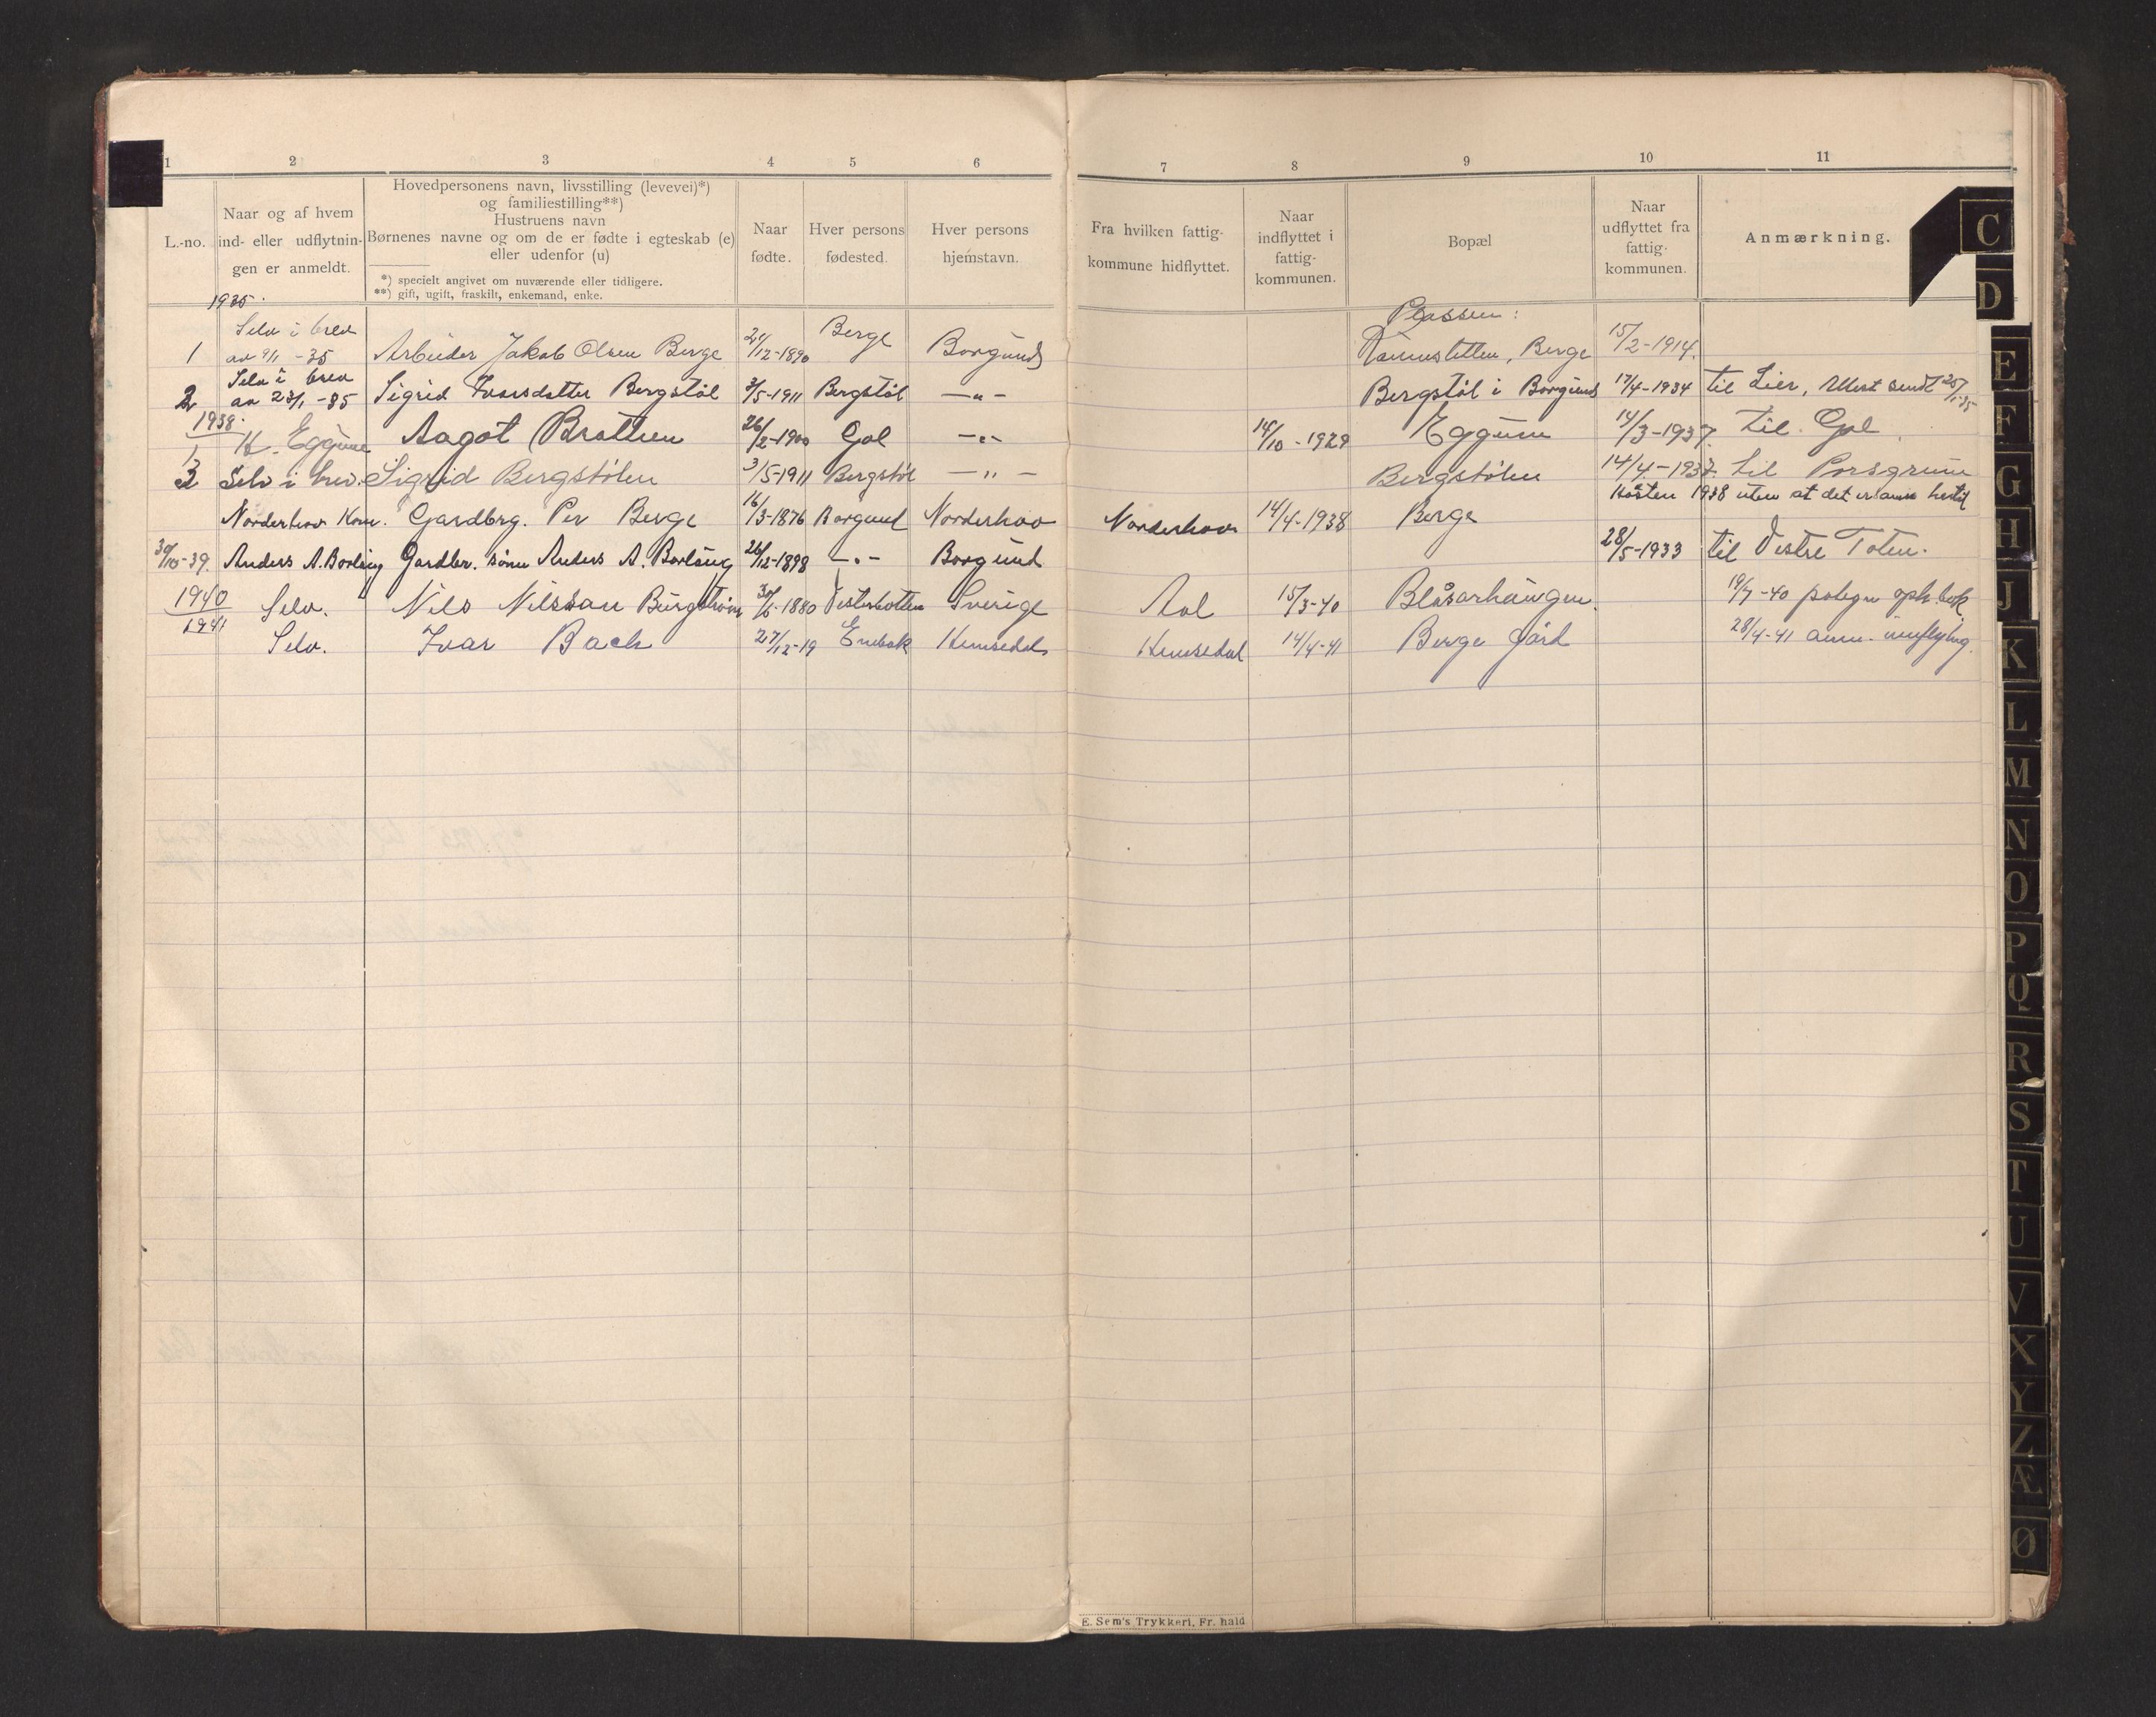 1 2 3 4 5 6 7 8 9 10 11
L.-no.
Naar og af hvem
ind- eller udflytnin-
gen er anmeldt.
Hovedpersonens navn, livsstilling (levevei)*)
og familiestilling**)
Hustruens navn
Børnenes navne og om de er fødte i egteskab (e)
eller udenfor (u)
*) specielt angivet om nuværende eller tidligere.
**) gift, ugift, fraskilt, enkemand, enke.
Naar
fødte.
Hver persons
fødested.
Hver persons
hjemstavn.
Fra hvilken fattig-
kommune hidflyttet.
Naar
indflyttet i
fattig-
kommunen.
Bopæl
Naar
udflyttet fra
fattig-
kommunen.
Anmærkning.
1935.
Selv i brev Berge Plassen:
1 av 9/1 -35 Arbeider Jakob Olsen Berge 21/12-1890 Borgund Berge 15/2-1914.
Selv i brev
2 av 23/1 -35 Sigrid Ivarsdatter Bergstøl 3/5-1911 Bergstøl -„- Bergstøl i Borgund 17/4-1934 til Lier, Attest sendt 25/1-35
1938.
1 K. Eggum Aagot Bratteen 26/2-1900 Gol -„- 14/10-1929 Eggum 14/3-1937. til Gol.
2 Selv i brev. Sigrid Bergstølen 3/5-1911 Bergstøl -„- Bergstølen 14/4-1937. til Porsgrunn
Høsten 1938 uten at det er anm. hertil
Norderhov Kom. Gardbrg. Per Berge 16/3-1876 Borgund Norderhov Norderhov 14/4-1938 Berge
30/10-39. Anders A. Borlaug Gardbr. sønn Anders A. Borlaug 26/12-1898 -„- Borgund 28/5-1933 til Vestre Toten.
1940 Selv. Nils Nilssan Burgstrøm 30/6-1880 Vesterbotten Sverige Aal 15/3-40 Blåsarhaugen. 19/7-40 påtegn. oph. bok
1941
Selv. Ivar Bach 27/12-19 Enebak Hemsedal Hemsedal 14/4-41 Berge gård 28/4-41 anm. innflytng.
E. Sem's Trykkeri, Fr. hald
C
D
E
F
G
H
J
K
L
M
N
O
P
Q
R
S
T
U
V
X
Y
Z
Æ
Ø